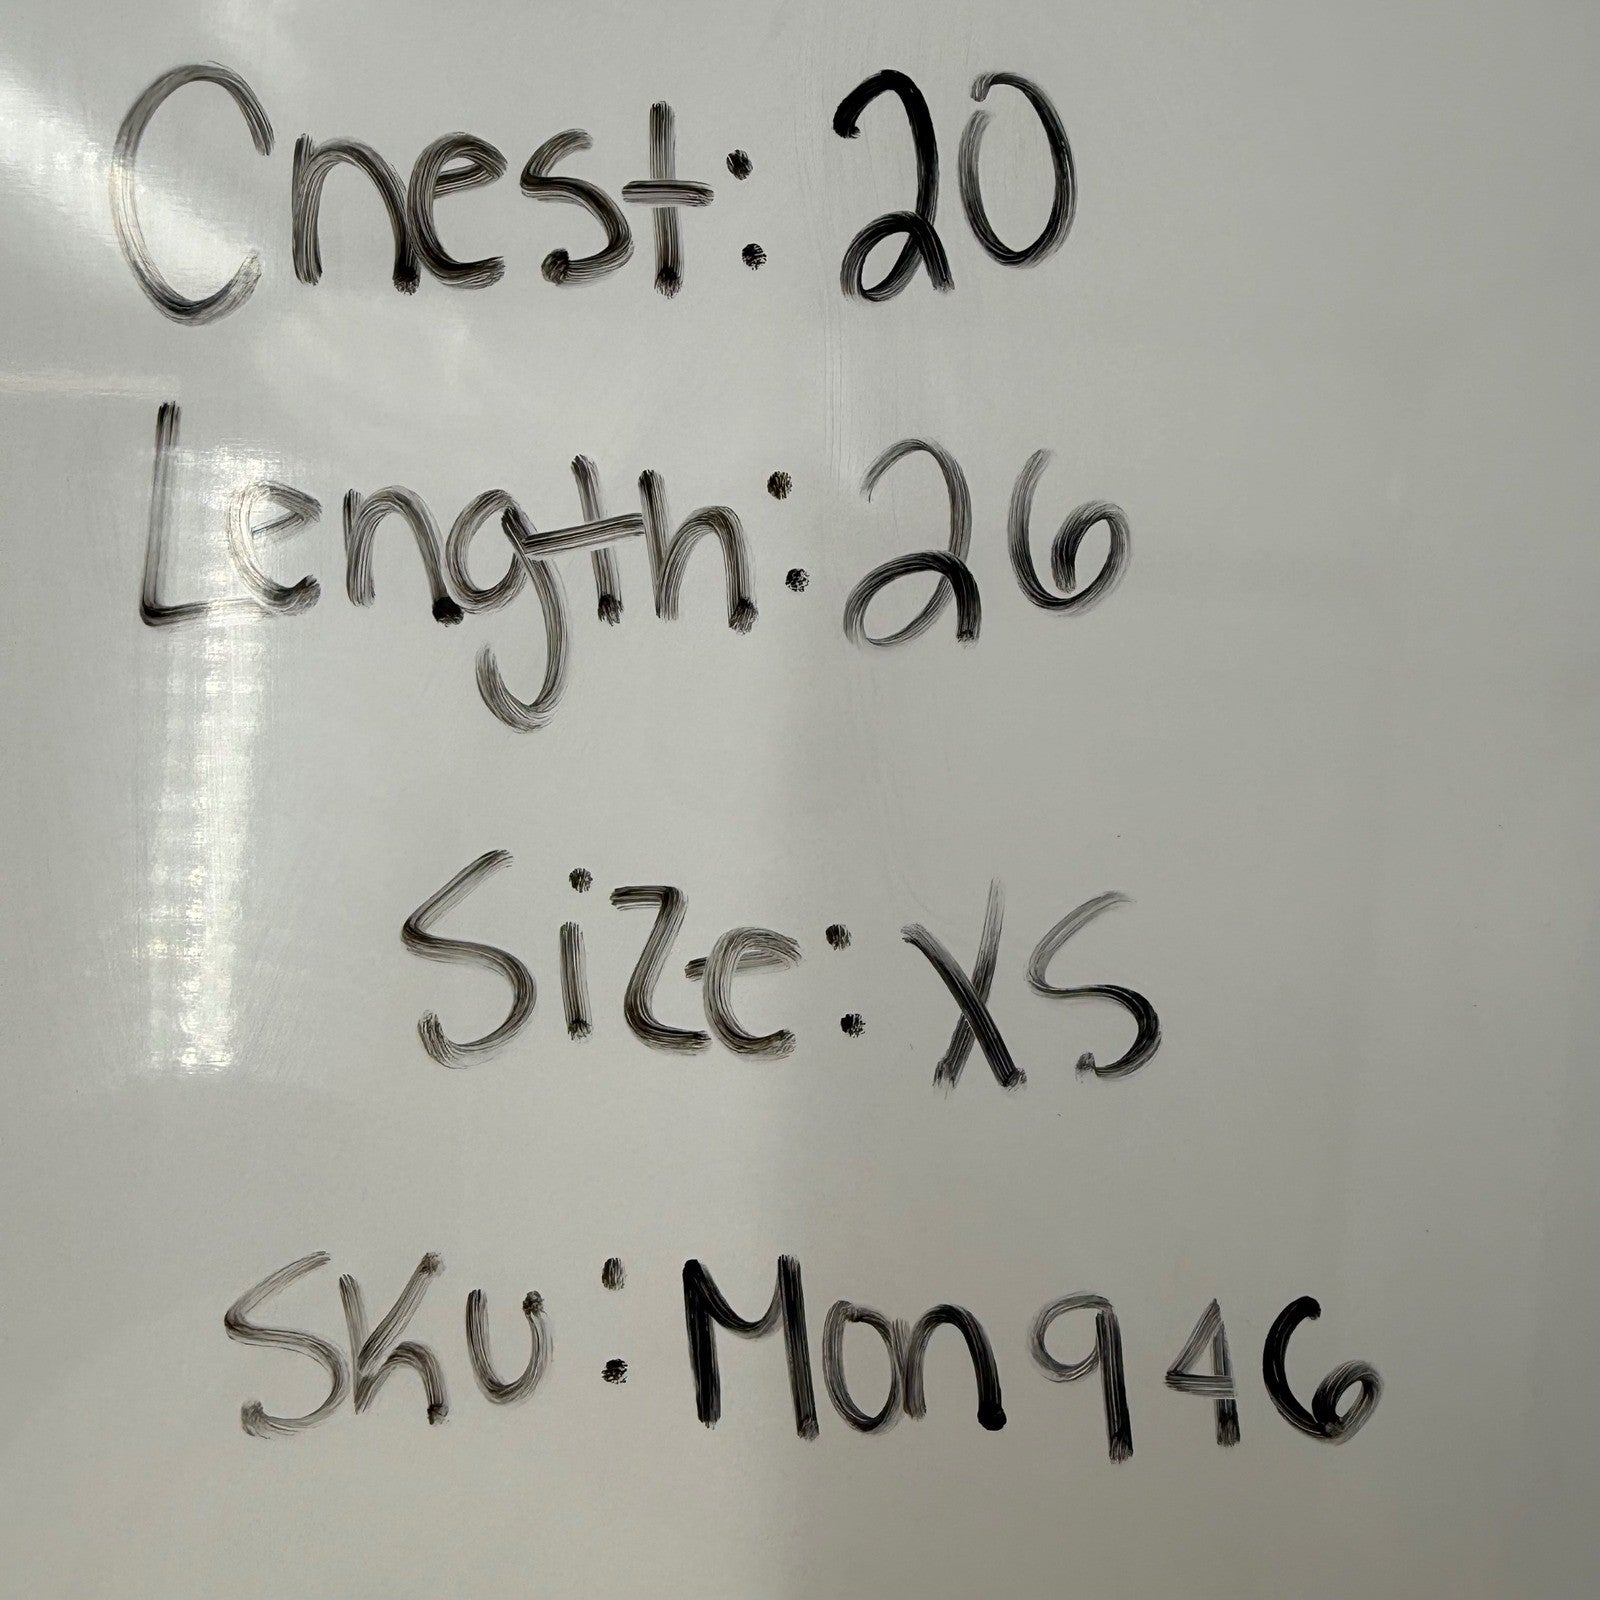 Chest: 20
Length: 26
Size: XS
SKU: Mon946